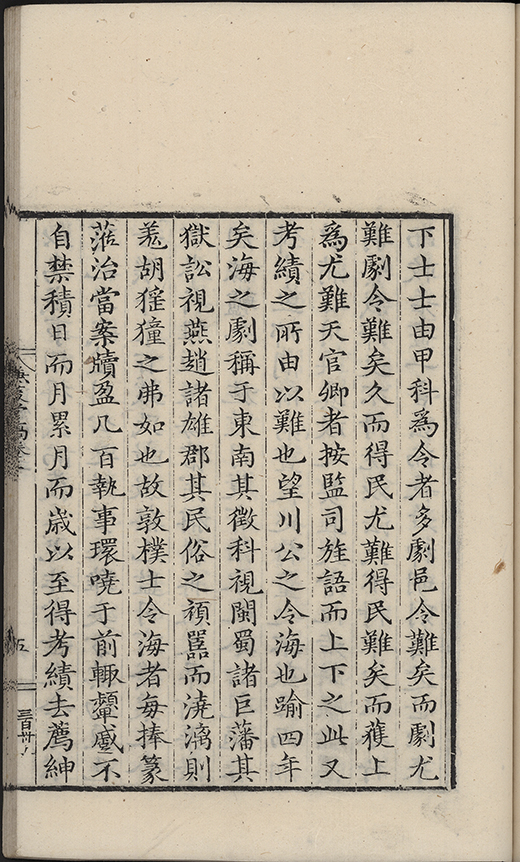 下士士由甲科爲令者多劇邑令難矣而劇尤
難劇令難矣久而得民尤難得民難矣而獲上
爲尤難天官卿者按監司旌語而上下之此又
考績之所由以難也望川公之令海也踰四年
矣海之劇稱于東南其徵科視閩蜀諸巨藩其
獄訟視燕趙諸雄郡其民俗之頑嚚而澆漓則
羗胡猺獞之弗如也故敦樸士令海者每捧篆
蒞治當案牘盈几百執事環嘵于前輙顰蹙不
自禁積日而月累月而歲以至得考績去薦紳